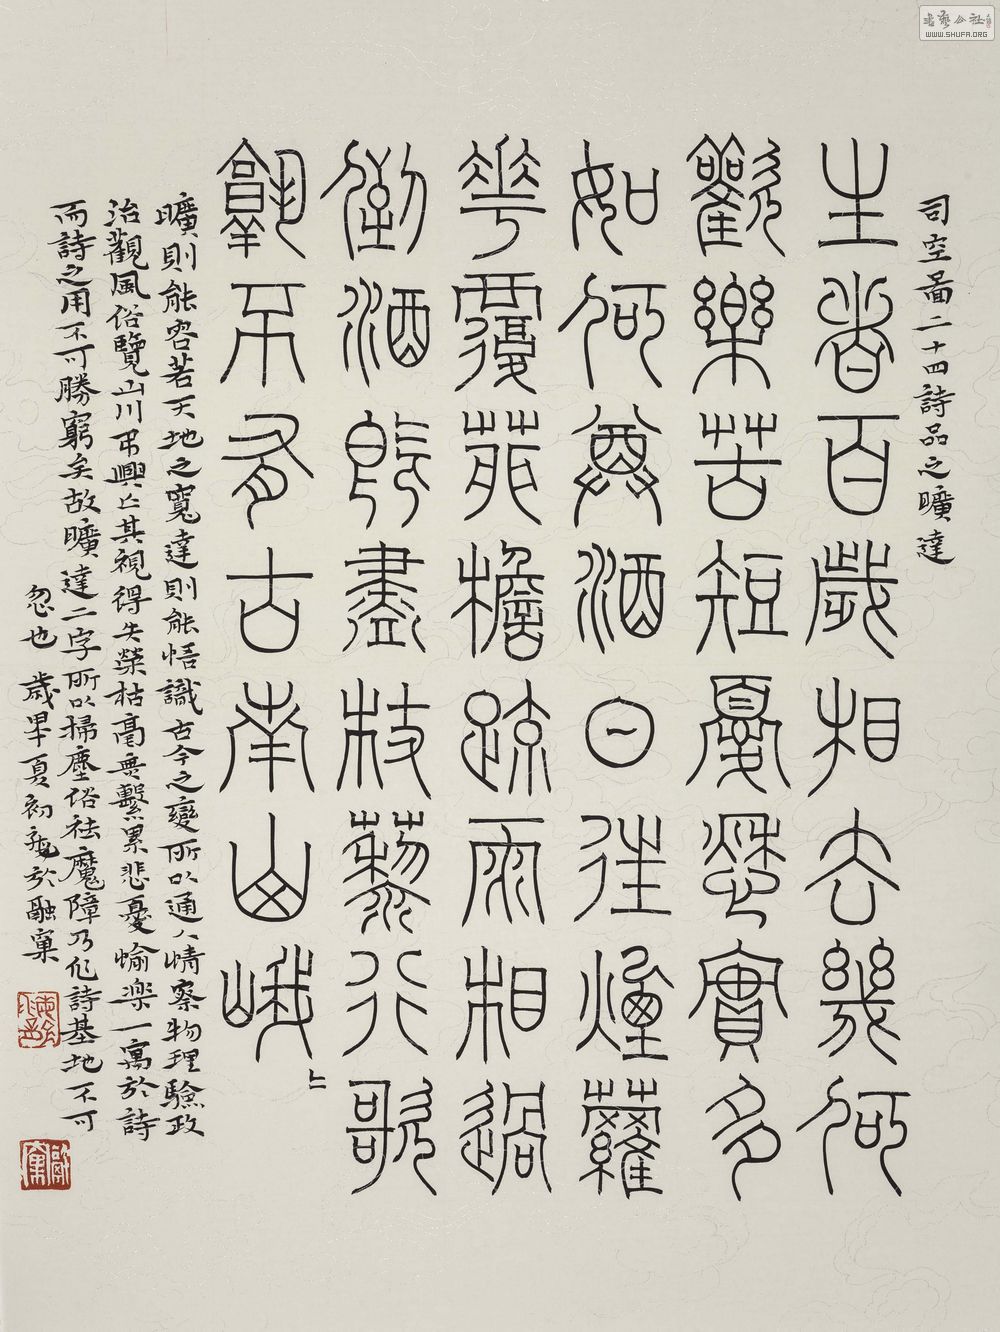 司空啚二十四詩品之曠達
生者百歲相去幾何
歡樂苦短憂愁實多
如何尊酒日往煙蘿
華覆茆檐疏雨相過
倒酒既盡杖藜行歌
孰不有古南山峨〻
曠則能容若天地之寬達則能悟識古今之變所以通人情察物理驗政
治觀風俗覽山川弔興亡其視得失榮枯毫無繫累悲憂愉樂一寓於詩
而詩之用不可勝窮矣故曠達二字所以掃塵俗祛魔障乃作詩基地不可
忽也 歲 夏初 於融窠
書藝公社
WWW.SHUFA.ORG